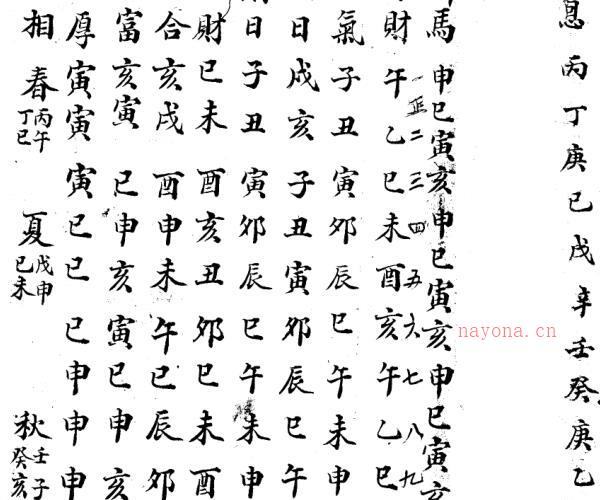 恩丙丁庚己戊辛壬癸庚乙
馬申巳寅亥申巳寅亥申巳寅亥
正二三四五六七八九
財午乙巳未酉亥午乙巳
氣子丑寅卯辰巳午未申
日戌亥子丑寅卯辰巳午
日子丑寅卯辰巳午未申
財巳未酉亥丑卯巳未酉
合亥戌酉申未午巳辰卯
富亥寅巳申亥寅巳申亥
厚寅寅寅巳巳巳申申申
相春丙午丁巳夏戊申己未秋壬子癸亥
nayona.cn